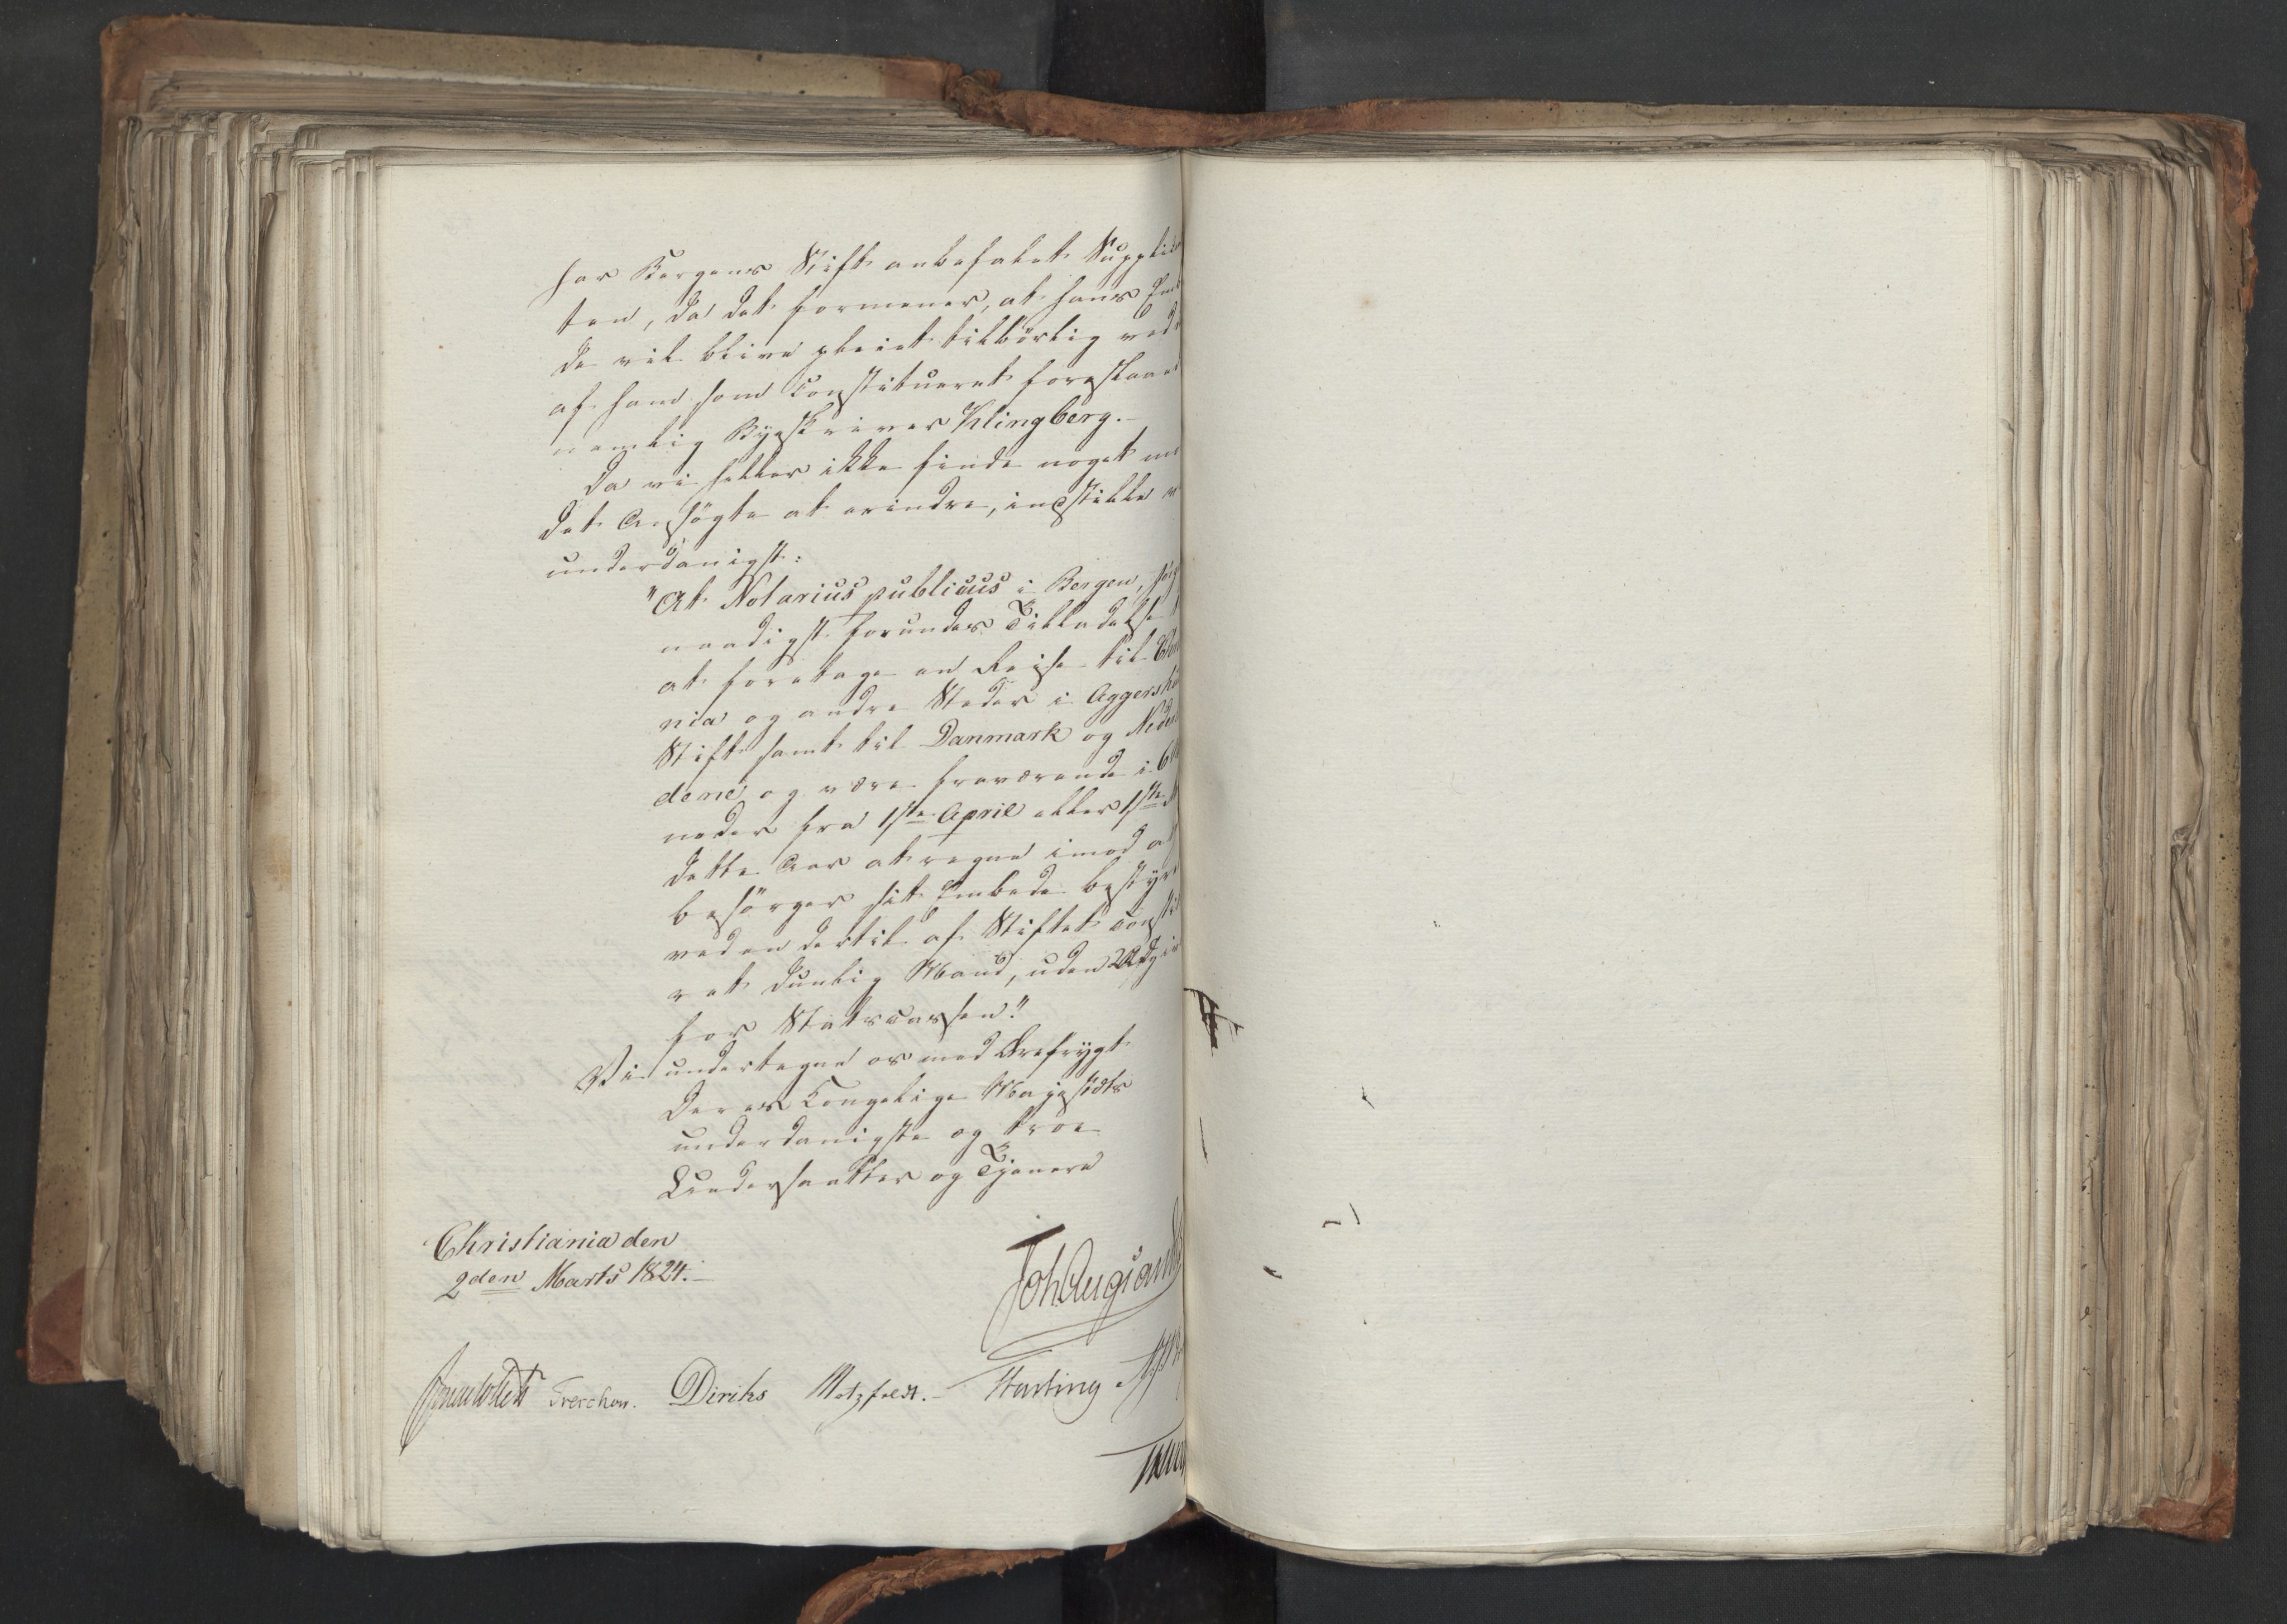 har Bergens Stift anbefalet Supplican
ten, da det formener, at hans Em
de vil blive pleiet tilbörlig ved
af ham som Constitueret foreslaaed
nemlig Byeskriver Klingberg.
Da vi heller ikke finde noget m
det Ansøgte at erindre, indstille v
underdanigst:
"At Notarius publicus i Bergen,
naadigst forundes Tilladelse
at foretage en Reise til Chr
nia og andre Steder i Aggershu
Stift samt til Danmark og Neder
dene og være fraværende i 6
neder fra 1ste April eller 1ste M
dette Aar at regne imod at
besörger sit Embede bestyre
ved en dertil af Stiftet const
ret duelig Mand, uden Udgi
for Statscassen."
Vi undertegne os med Ærefrygt
Deres Kongelige Majestæts
underdanigste og troe
Undersaatter og Tjenere
Christiania den
2den Marts 1824.
Joh Aug Sand
Treschow. Diriks Motzfeldt.